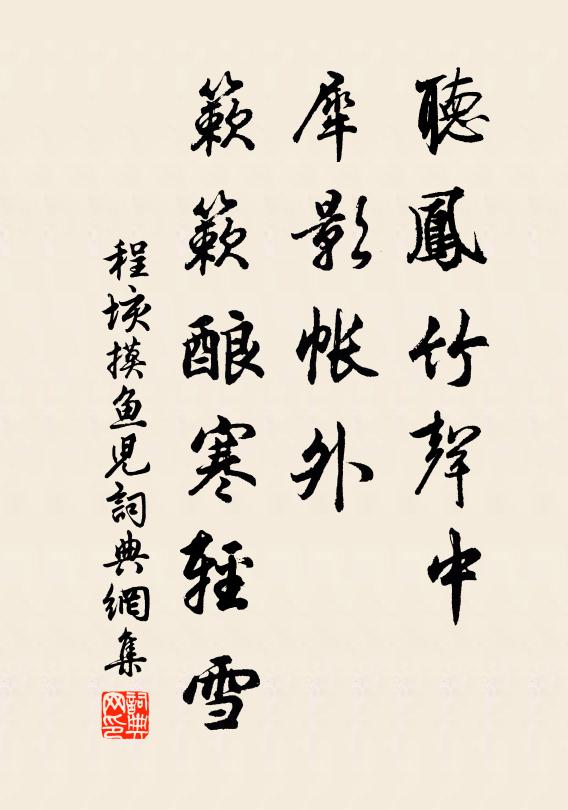 聽鳳竹聲中
犀影帳外
簌簌酿寒輕雪
程垓摸魚児詞典網集
詞典网印